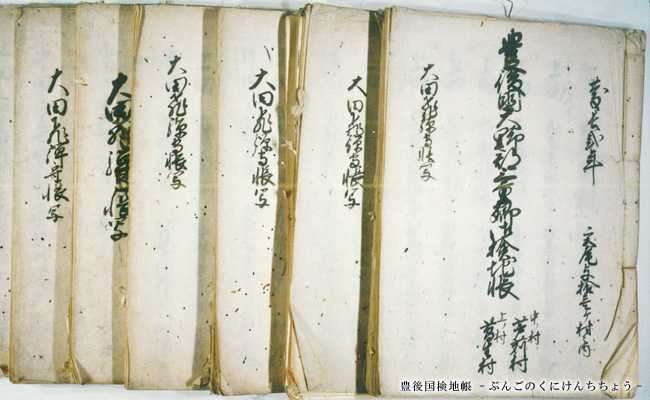 慶長弐年
豊後國大野郡三重郷御検地帳
中村
上村
大田飛騨守帳写
大田飛騨守帳写
大田飛騨守帳写
大田飛騨守帳写
大田飛騨守帳写
大田飛騨守帳写
豊後国検地帳 －ぶんごのくにけんちちょう－